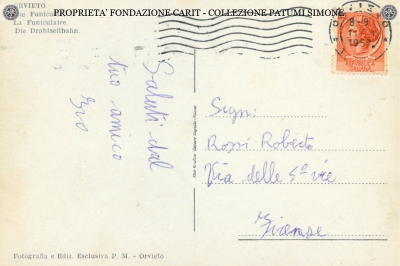 PROPRIETA' FONDAZIONE CARIT - COLLEZIONE PATUMI SIMONE
ORVIETO
La Funiculaire.
Die Drahtseilbahn.
8-9
Saluti dal
tuo amico
Sign:
Rossi Roberto
Via delle 5 vie
Firenze
Fotografia e Ediz. Esclusiva P. M. - Orvieto